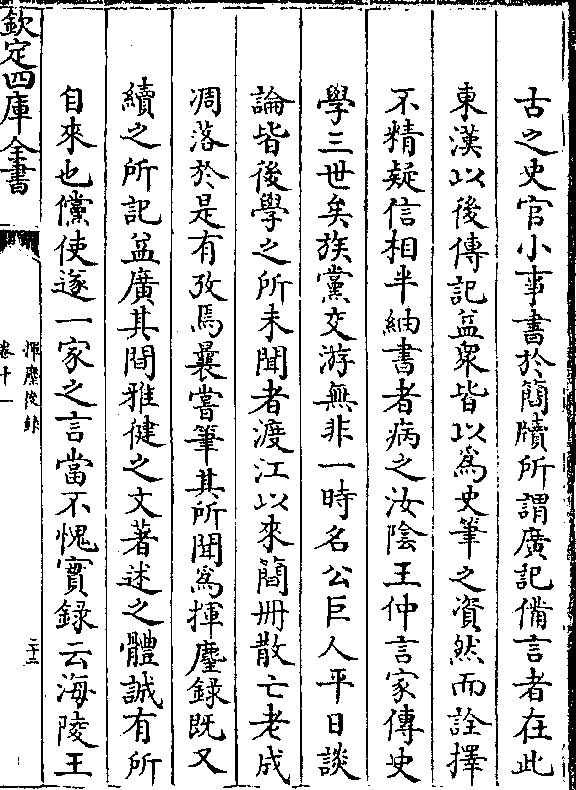 古之史官小事書於簡牘所謂廣記備言者在此
東漢以後傳記益衆皆以為史筆之資然而詮擇
不精疑信相半紬書者病之汝陰王仲言家傳史
學三世矣族黨交游無非一時名公巨人平日談
論皆後學之所未聞者渡江以來簡冊散亡老成
凋落於是有攷焉曩嘗筆其所聞為揮麈錄既又
續之所記益廣其間雅健之文著述之體誠有所
自來也儻使遂一家之言當不愧實錄云海陵王
欽定四庫全書
揮麈後錄
卷十一
二十三